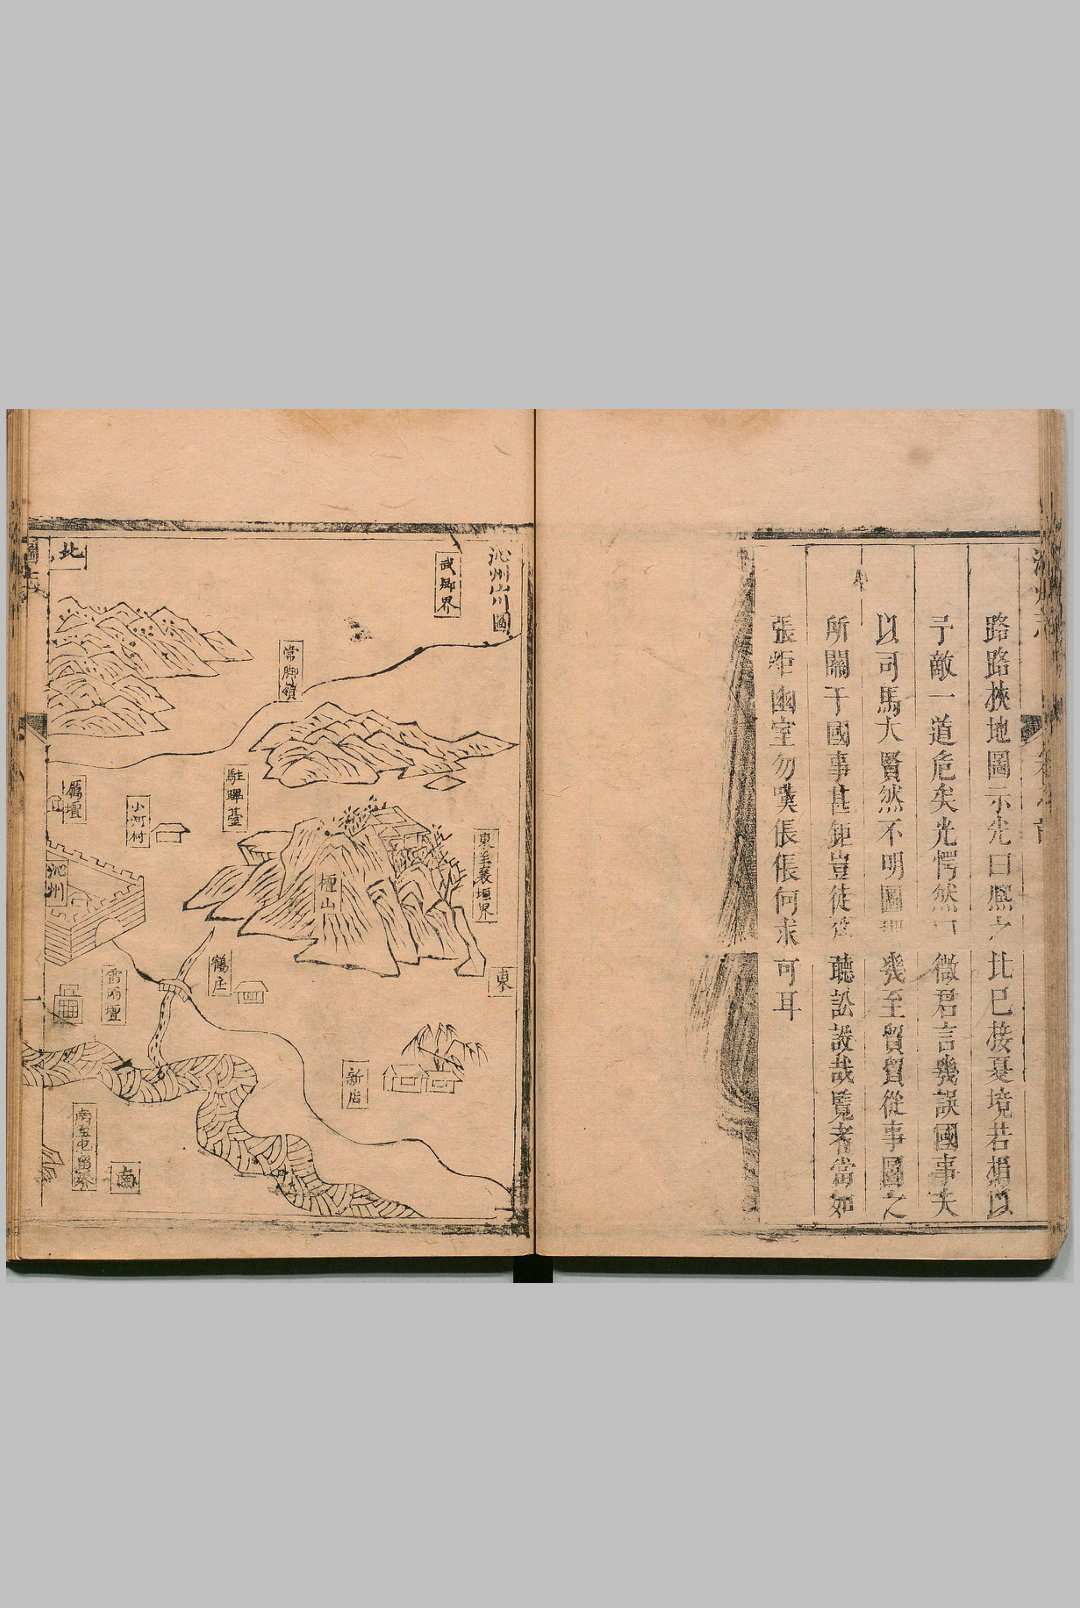 路路挾地圖示光曰熈之北已接夏境若捐以
予敵一道危矣光愕然曰微君言幾誤國事夫
以司馬大賢然不明圖理幾至貿貿從事圖之
所關于國事甚鉅豈徒為聽訟設哉覧者當如
張炬幽室勿嘆倀倀何求可耳
沁州山川圖
武鄉界
北
常脚嶺
駐蹕臺
小河村
厲壇
沁州
東至襄垣界
檀山
東
鶴庄
雷雨壇
新店
南至屯留界
南